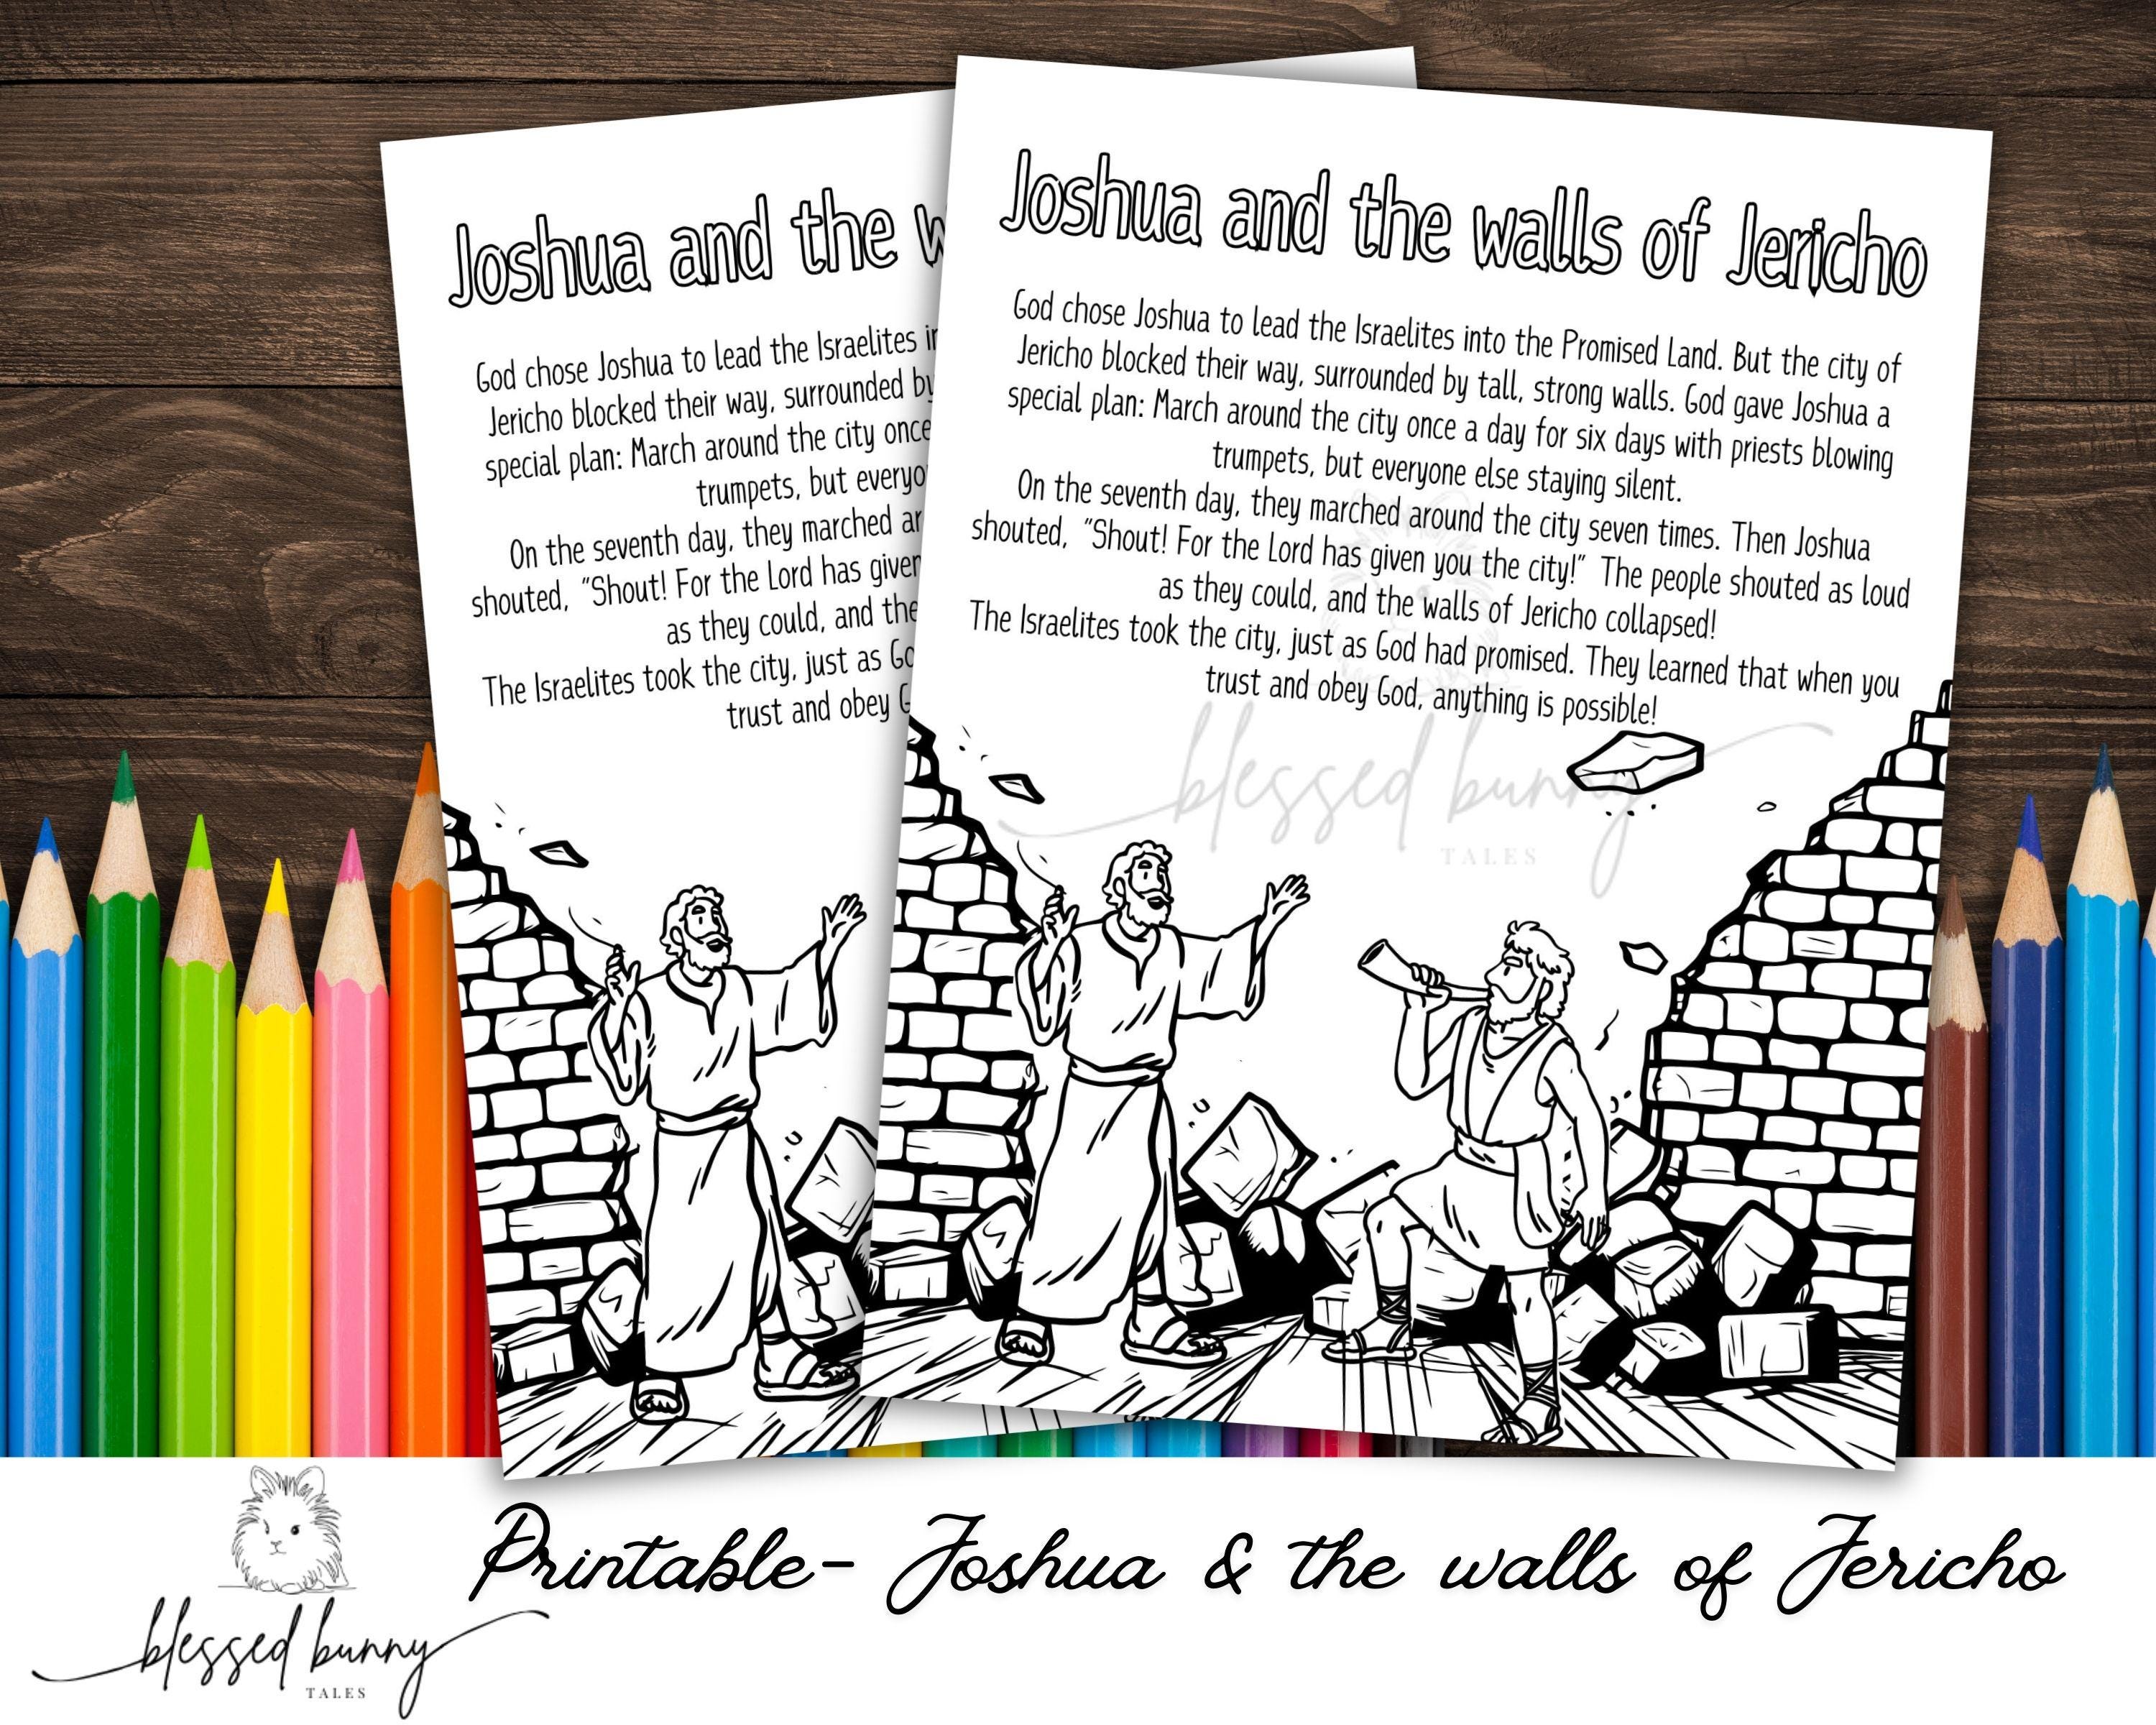 Joshua and the w
God chose Joshua to lead the Israelites in
Jericho blocked their way, surrounded by
special plan: March around the city once
trumpets, but everyo
On the seventh day, they marched ar
shouted, "Shout! For the Lord has given
as they could, and the
The Israelites took the city, just as Go
trust and obey G
Joshua and the walls of Jericho
God chose Joshua to lead the Israelites into the Promised Land. But the city of
Jericho blocked their way, surrounded by tall, strong walls. God gave Joshua a
special plan: March around the city once a day for six days with priests blowing
trumpets, but everyone else staying silent.
On the seventh day, they marched around the city seven times. Then Joshua
shouted, "Shout! For the Lord has given you the city!" The people shouted as loud
as they could, and the walls of Jericho collapsed!
The Israelites took the city, just as God had promised. They learned that when you
trust and obey God, anything is possible!
blessed bunny
TALES
Printable- Joshua & the walls of Jericho
blessed bunny
TALES